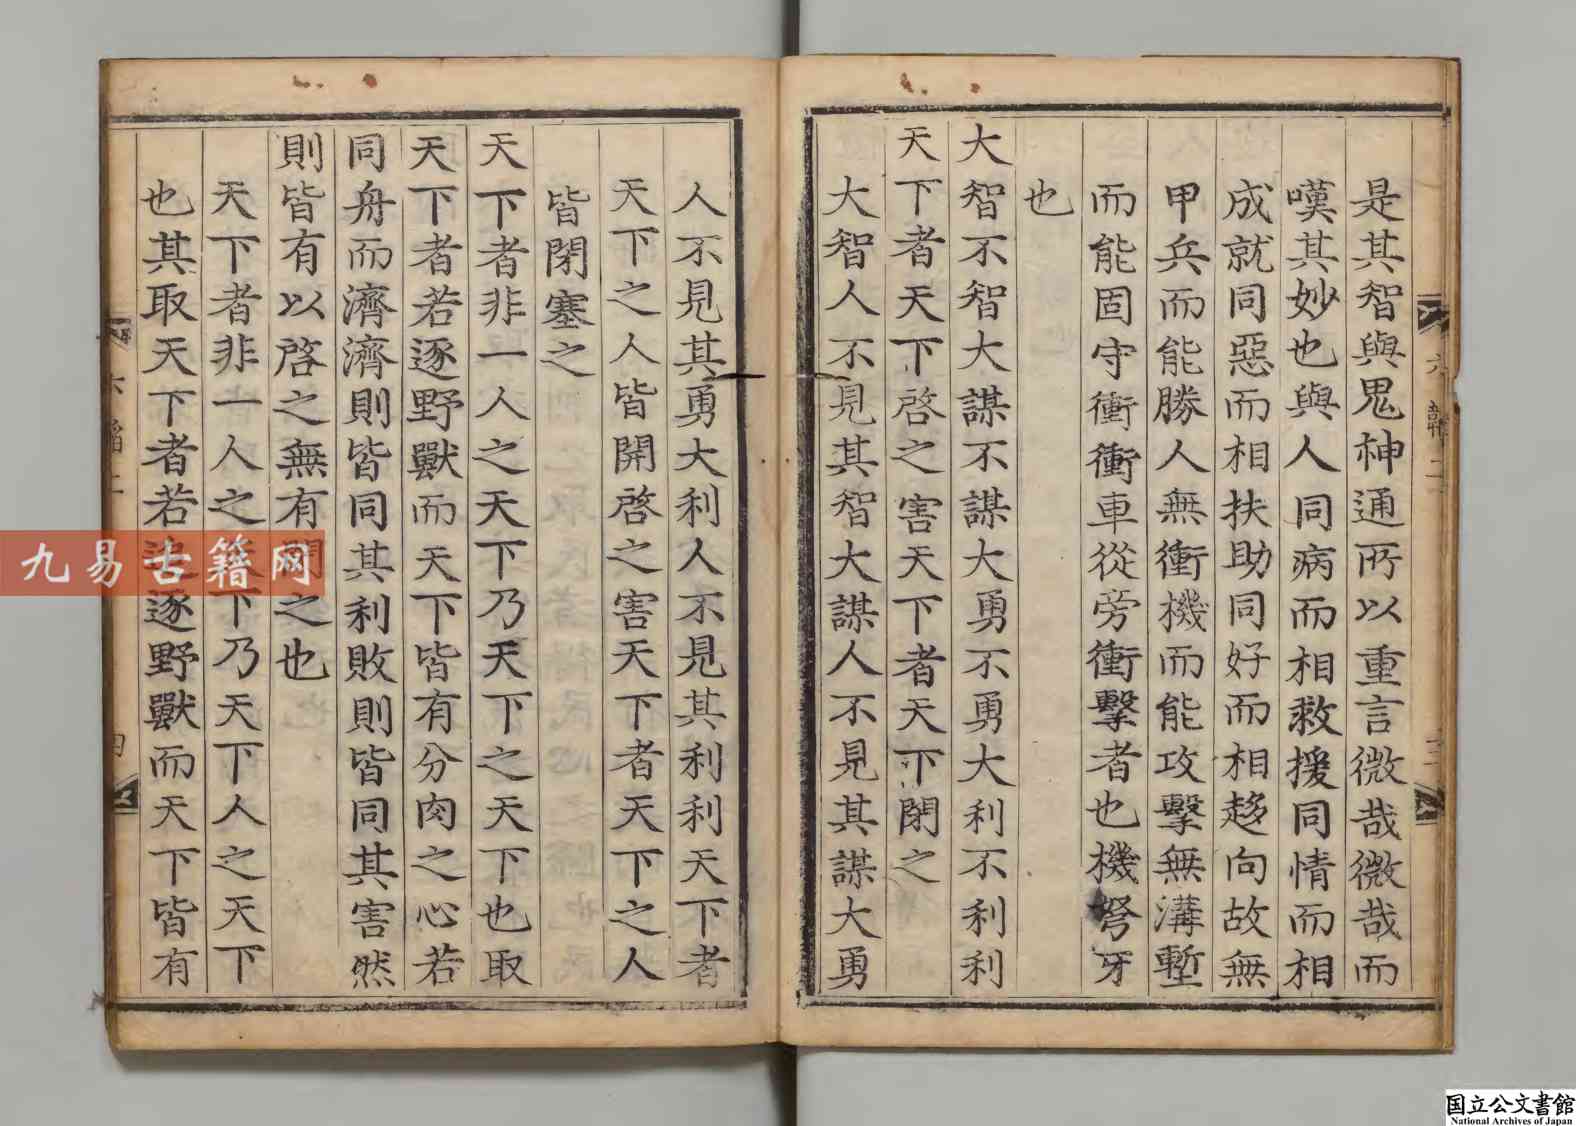 是其智與鬼神通所以重言微哉微哉而
嘆其妙也與人同病而相救援同情而相
成就同惡而相扶助同好而相趍向故無
甲兵而能勝人無衝機而能攻擊無溝塹
而能固守衝衝車從旁衝擊者也機弩牙
也
大智不智大謀不謀大勇不勇大利不利利
天下者天下啓之害天下者天下閉之
大智人不見其智大謀人不見其謀大勇
人不見其勇大利人不見其利利天下者
天下之人皆開啓之害天下者天下之人
皆閉塞之
天下者非一人之天下乃天下之天下也取
天下者若逐野獸而天下皆有分肉之心若
同舟而濟濟則皆同其利敗則皆同其害然
則皆有以啓之無有閉之也
天下者非一人之天下乃天下人之天下
也其取天下者若追逐野獸而天下皆有
六韜二
九易古籍网
国立公文書館
National Archives of Japan